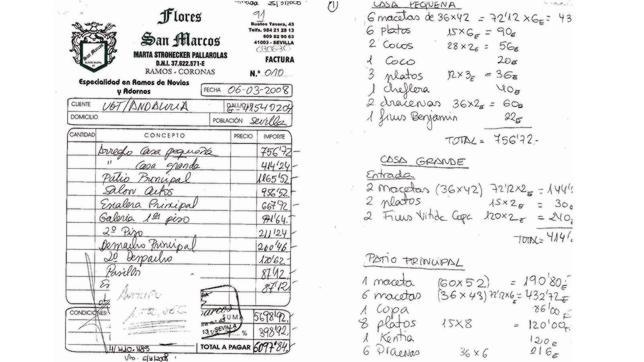 Flores
San Marcos
MARTA STROHECKER PALLAROLAS
D.N.I. 37.622.571-E
RAMOS - CORONAS
Buenos Tevera, 43
Telfs. 954 21 28 13
609 82 90 63
41003 - SEVILLA
FACTURA
N.º 010
Especialidad en Ramos de Novias
y Adornos
FECHA 06-03-2008
CLIENTE UGT/ANDALUCIA
DOMICILIO
POBLACIÓN Sevilla
CANTIDAD CONCEPTO PRECIO IMPORTE
Arreglo Casa pequeña 756'72
" Casa grande 414'24
Patio Principal 1165'52
Salon Actos 956'52
Escalera Principal 667'92
Galeria 1er piso
2º Piso 211'24
Despacho Principal 200'46
2º Despacho 120'62
Pasillo 87'12
87'12
CONDICIONES
SUMA 5698'92
% 398'92
TOTAL A PAGAR 6097'84
(1)
CASA PEQUEÑA
6 macetas de 36x42 = 72'12 x 6€ = 43
6 platos 15x6€ = 90€
2 Cocos 28x2€ = 56€
1 Coco 20€
3 platos 12x3€ = 36€
1 cheflera 40€
2 dracenas 36x2€ = 60€
1 ficus Benjamin 22€
TOTAL = 756'72.-
CASA GRANDE
Entrada
2 macetas (36x42) 72'12x2€ = 144'
2 platos 15x2€ = 30€
2 Ficus Copa 120x2€ = 240
TOTAL = 414'
PATIO PRINCIPAL
1 maceta (60x52) = 190'80€
6 macetas (36x43) 72'12x6€ = 432'72€
1 Copa 86'00€
8 platos 15x8 = 120'00€
1 Kentia 120€
6 Dracenas 36x6 216€